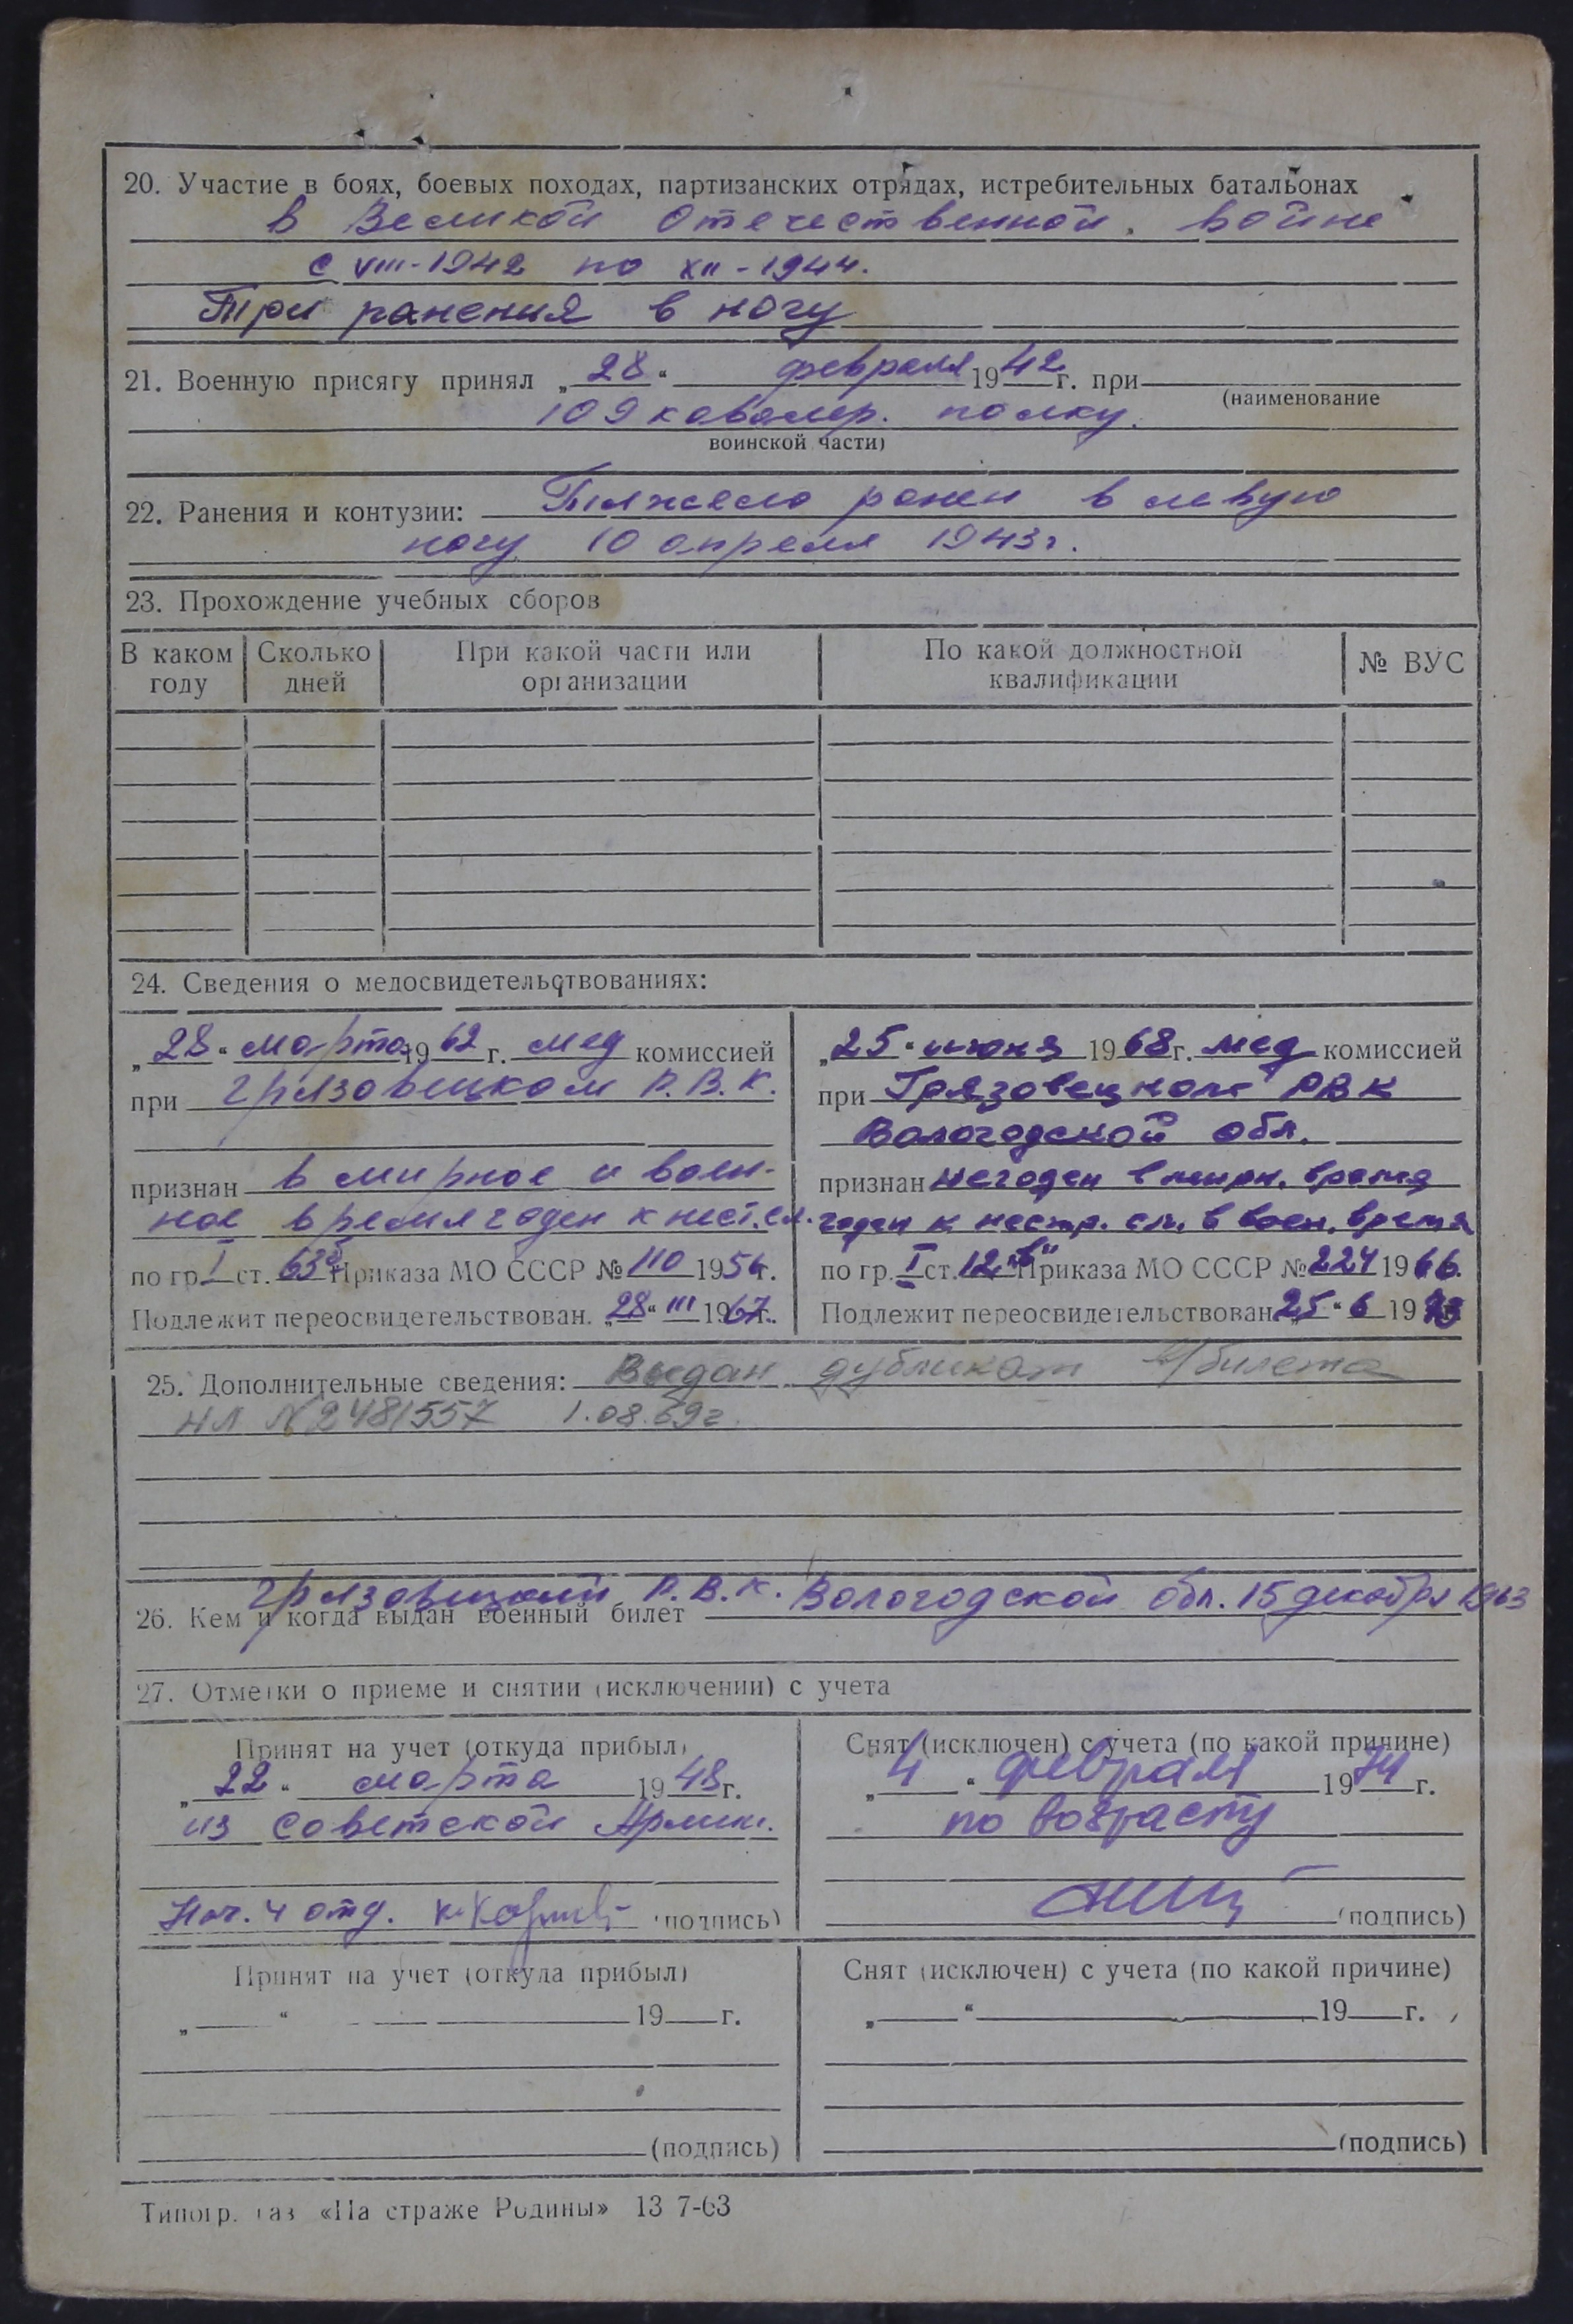 20. Участие в боях, боевых походах, партизанских отрядах, истребительных батальонах
в Великой Отечественной войне
с VIII-1942 по XII-1944.
Три ранения в ногу
21. Военную присягу принял „28“ февраля 1942 г. при
(наименование
109 кавалер. полку.
воинской части)
22. Ранения и контузии: Тяжело ранен в левую
ногу 10 апреля 1943 г.
23. Прохождение учебных сборов
В каком году | Сколько дней | При какой части или организации | По какой должностной квалификации | № ВУС
24. Сведения о медосвидетельствованиях:
„28“ марта 1962 г. мед комиссией
при Грязовецком Р.В.К.
признан в мирное и воен-
ное время годен к нест. сл.
по гр. I ст. 63 Приказа МО СССР № 110 1956 г.
Подлежит переосвидетельствован. „28“ III 1967 г.
„25“ июня 1968 г. мед комиссией
при Грязовецком РВК
Вологодской обл.
признан негоден в мирн. время
годен к нестр. сл. в воен. время
по гр. I ст. 12 „в“ Приказа МО СССР № 224 1966.
Подлежит переосвидетельствован „25“ 6 1973
25. Дополнительные сведения: Выдан дубликат в/билета
НЛ №2481557 1.08.69г.
Грязовецким Р.В.К. Вологодской обл. 15 декабря 1963
26. Кем и когда выдан военный билет
27. Отметки о приеме и снятии (исключении) с учета
Принят на учет (откуда прибыл)
„22“ марта 1948 г.
из Советской Армии.
Нач. 4 отд. (подпись)
Снят (исключен) с учета (по какой причине)
„4“ февраля 1974 г.
по возрасту
(подпись)
Принят на учет (откуда прибыл)
„ “ 19 г.
(подпись)
Снят (исключен) с учета (по какой причине)
„ “ 19 г.
(подпись)
Типогр. газ «На страже Родины» 13 7-63